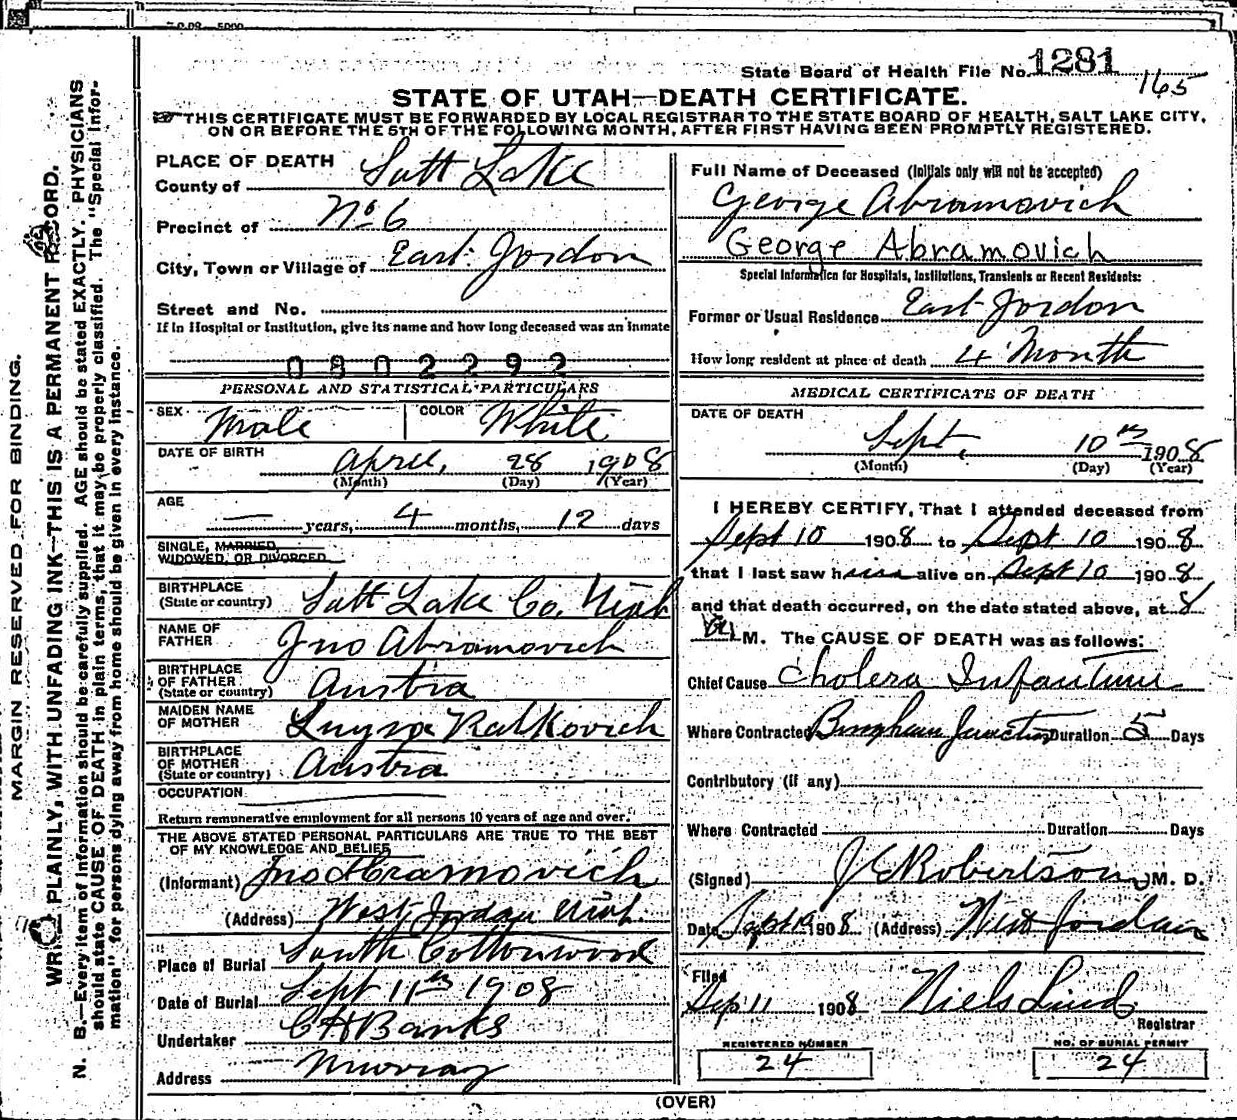 State Board of Health File No. 1281
165
STATE OF UTAH—DEATH CERTIFICATE.
THIS CERTIFICATE MUST BE FORWARDED BY LOCAL REGISTRAR TO THE STATE BOARD OF HEALTH, SALT LAKE CITY,
ON OR BEFORE THE 5TH OF THE FOLLOWING MONTH, AFTER FIRST HAVING BEEN PROMPTLY REGISTERED.
MARGIN RESERVED FOR BINDING.
PLAINLY, WITH UNFADING INK—THIS IS A PERMANENT RECORD.
N. B.—Every item of information should be carefully supplied. AGE should be stated EXACTLY. PHYSICIANS
should state CAUSE OF DEATH in plain terms, that it may be properly classified. The "Special Infor-
mation" for persons dying away from home should be given in every instance.
PLACE OF DEATH
County of Salt Lake
Precinct of No 6
City, Town or Village of East Jordon
Street and No.
If in Hospital or Institution, give its name and how long deceased was an inmate
0802292
PERSONAL AND STATISTICAL PARTICULARS
SEX Male COLOR White
DATE OF BIRTH April, 28 1908
(Month) (Day) (Year)
AGE
— years, 4 months, 12 days
SINGLE, MARRIED,
WIDOWED, OR DIVORCED
BIRTHPLACE
(State or country) Salt Lake Co, Utah
NAME OF
FATHER Jno Abramovich
BIRTHPLACE
OF FATHER
(State or country) Austra
MAIDEN NAME
OF MOTHER Ratkovich
BIRTHPLACE
OF MOTHER
(State or country) Austra
OCCUPATION
Return remunerative employment for all persons 10 years of age and over.
THE ABOVE STATED PERSONAL PARTICULARS ARE TRUE TO THE BEST
OF MY KNOWLEDGE AND BELIEF
(Informant) Jno Abramovich
(Address) West Jordan Utah.
Place of Burial South Cottonwood
Date of Burial Sept 11th 1908
Undertaker C H Banks
Address Murray
Full Name of Deceased (Initials only will not be accepted)
George Abramovich
George Abramovich
Special Information for Hospitals, Institutions, Transients or Recent Residents:
Former or Usual Residence East Jordon
How long resident at place of death 4 Month
MEDICAL CERTIFICATE OF DEATH
DATE OF DEATH
Sept, 10th 1908
(Month) (Day) (Year)
I HEREBY CERTIFY, That I attended deceased from
Sept 10 1908 to Sept 10 1908
that I last saw him alive on Sept 10 1908
and that death occurred, on the date stated above, at 8
M. The CAUSE OF DEATH was as follows:
Chief Cause Cholera Infantum
Where Contracted Bingham Junction Duration 5 Days
Contributory (if any)
Where Contracted Duration Days
(Signed) J E Robertson M. D.
Date Sept 10 1908 (Address) West Jordan
Filed
Sep 11 1908 Niels Lind
Registrar
REGISTERED NUMBER
24
NO. OF BURIAL PERMIT
24
(OVER)